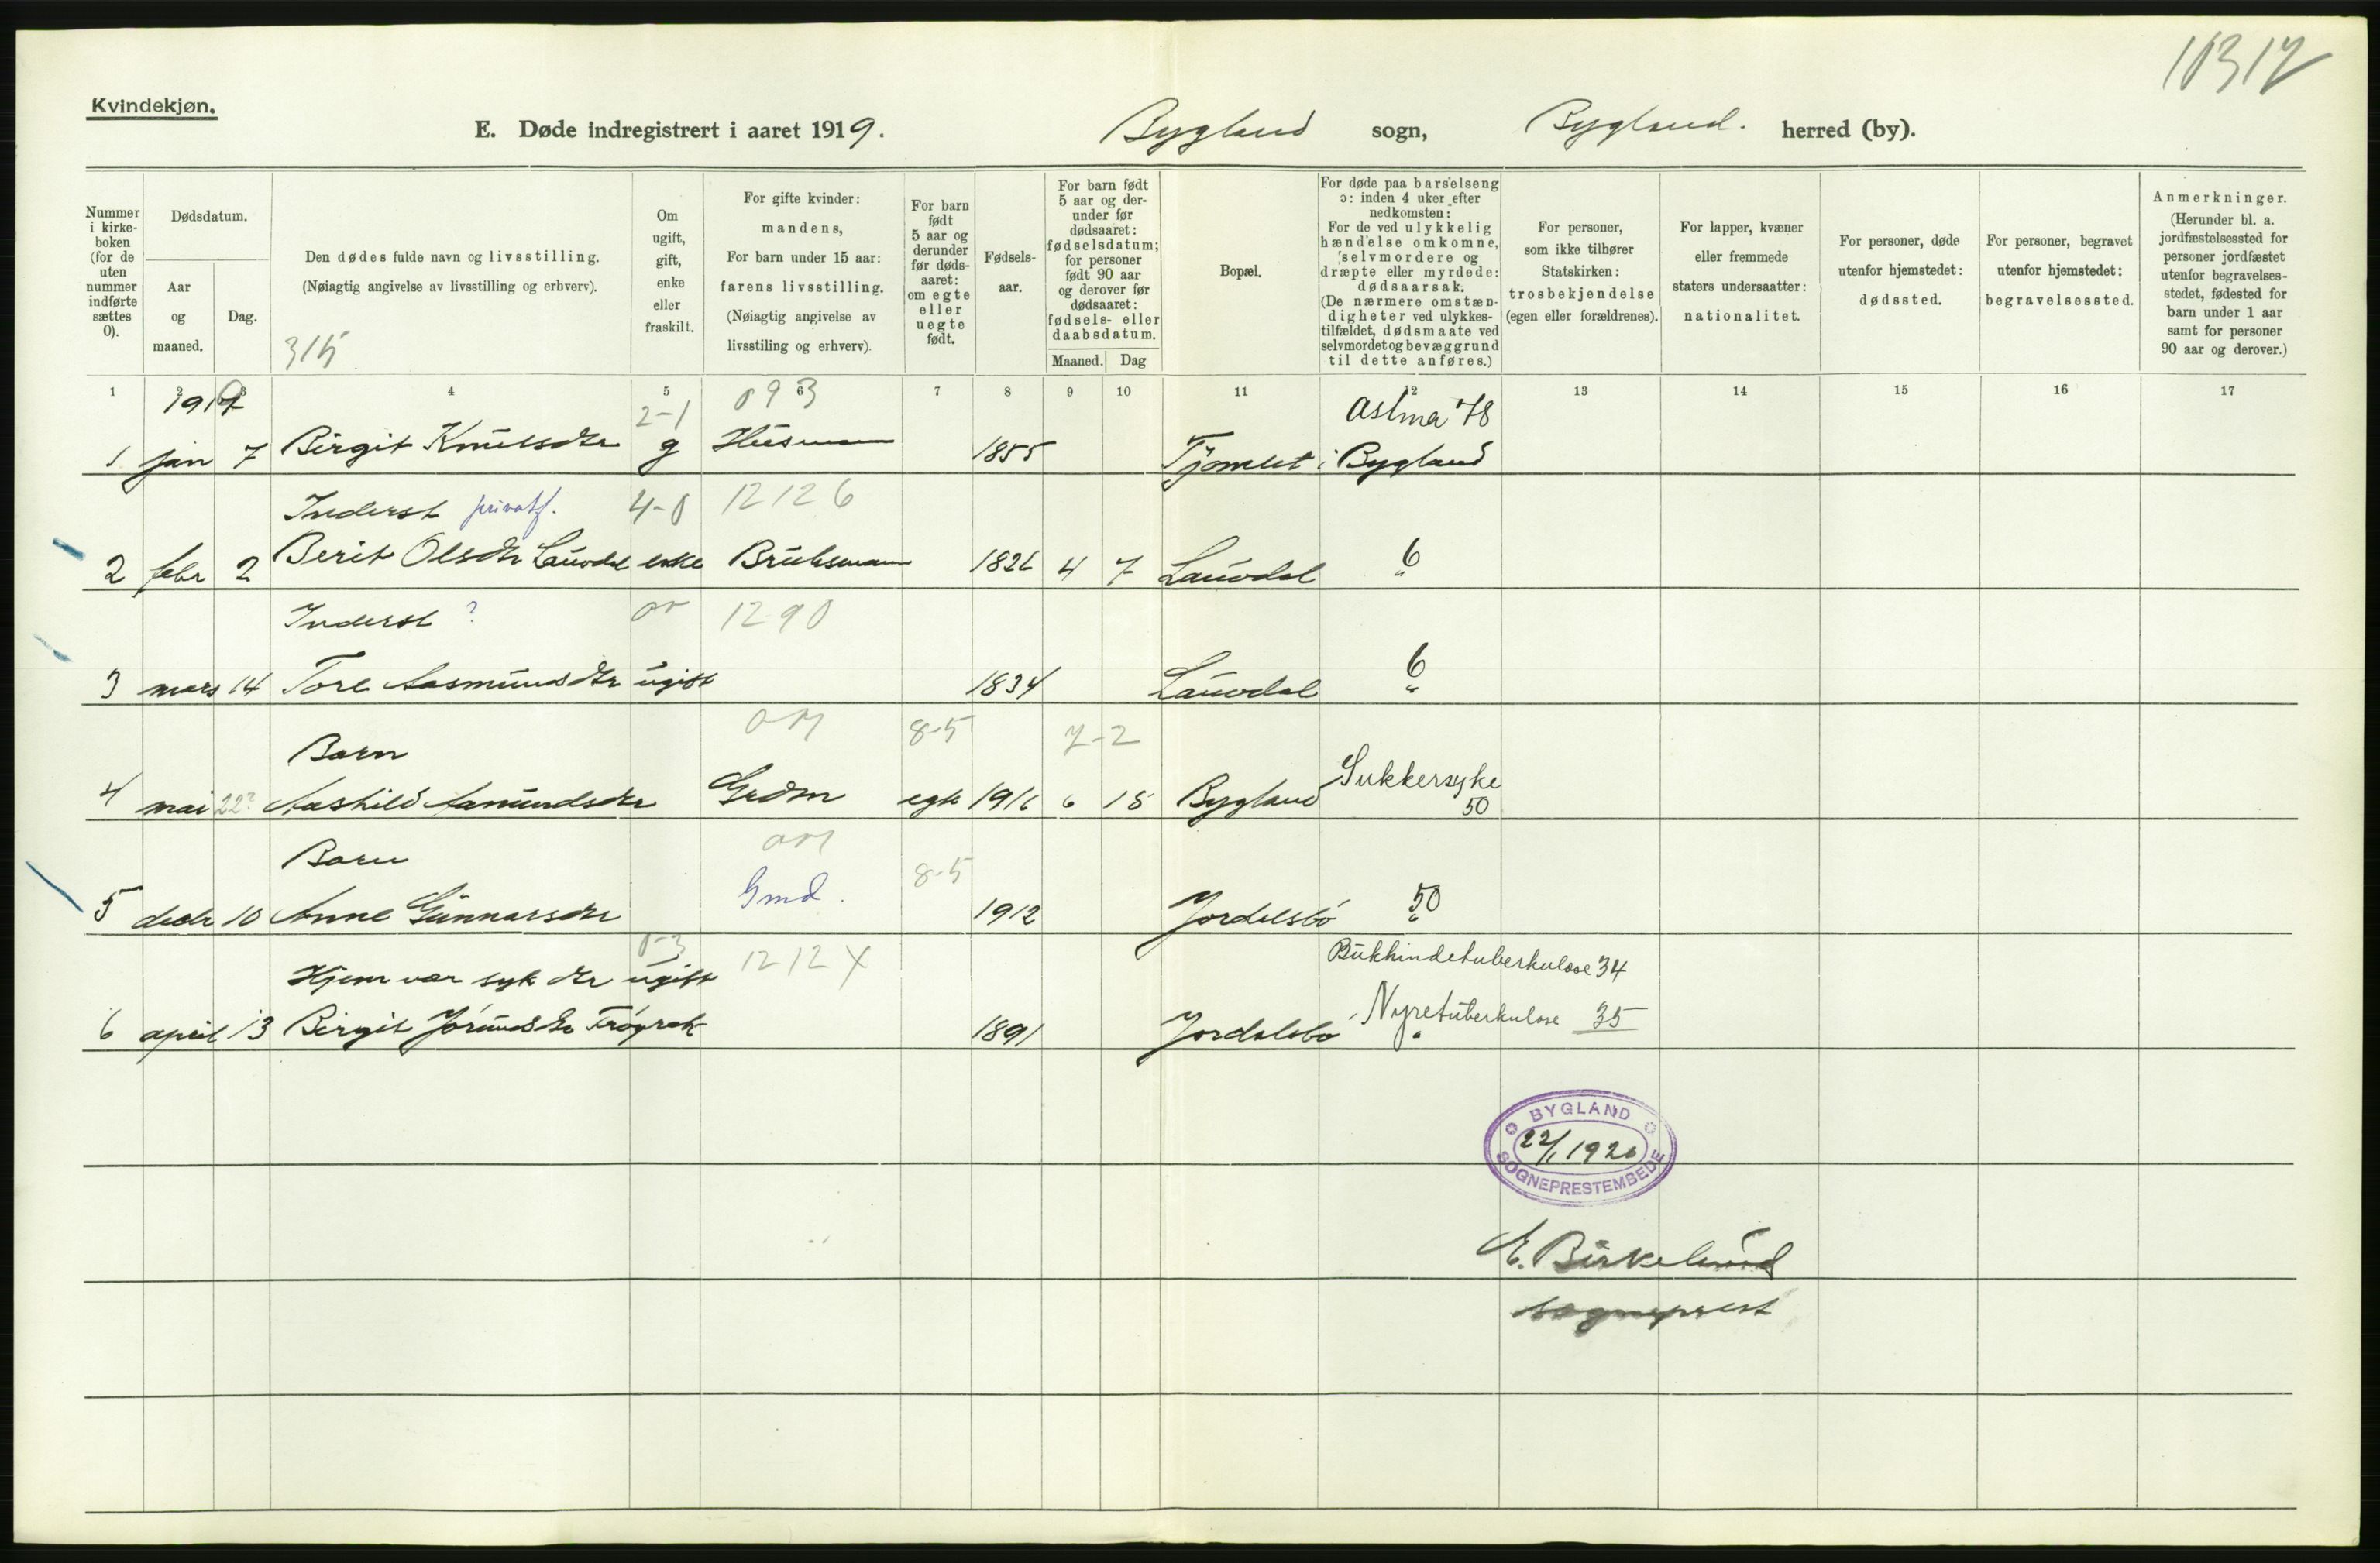 11317
Kvindekjøn.
E. Døde indregistrert i aaret 1919. Bygland sogn, Bygland. herred (by).
Nummer i kirke-boken (for de uten nummer indførte sættes 0).
Dødsdatum.
Aar og maaned.
Dag.
Den dødes fulde navn og livsstilling.
(Nøiagtig angivelse av livsstilling og erhverv).
315
Om ugift, gift, enke eller fraskilt.
For gifte kvinder: mandens,
For barn under 15 aar: farens livsstilling.
(Nøiagtig angivelse av livsstiling og erhverv).
For barn født 5 aar og derunder før døds-aaret: om egte eller uegte født.
Fødsels-aar.
For barn født 5 aar og der-under før dødsaaret: fødselsdatum; for personer født 90 aar og derover før dødsaaret: fødsels- eller daabsdatum.
Maaned. Dag
Bopæl.
For døde paa barselseng ɔ: inden 4 uker efter nedkomsten:
For de ved ulykkelig hændelse omkomne, selvmordere og dræpte eller myrdede: dødsaarsak.
(De nærmere omstæn-digheter ved ulykkes-tilfældet, dødsmaate ved selvmordet og bevæggrund til dette anføres.)
For personer, som ikke tilhører Statskirken: trosbekjendelse (egen eller forældrenes).
For lapper, kvæner eller fremmede staters undersaatter: nationalitet.
For personer, døde utenfor hjemstedet: dødssted.
For personer, begravet utenfor hjemstedet: begravelsessted.
Anmerkninger.
(Herunder bl. a. jordfæstelsessted for personer jordfæstet utenfor begravelses-stedet, fødested for barn under 1 aar samt for personer 90 aar og derover.)
1 2 3 4 5 6 7 8 9 10 11 12 13 14 15 16 17
1919 2-1 093 Astma 78
1 jan 7 Birgit Knutsdtr g Husmann 1855 Tjomlet i Bygland
Inderst privatf. 4-0 12126
2 febr 2 Berit Olsdtr Lauvdal enke Bruksmann 1826 4 7 Lauvdal 6 "
Inderst ? 1290
3 mars 14 Tore Aasmundsdtr ugift 1834 Lauvdal 6 "
Barn 8-5 7-2 Sukkersyke
4 mai 22? Aashild Aamundsdtr Grdm egte 1916 6 15 Bygland 50
Barn Gmd. 8-5
5 decbr 10 Anne Gunnarsdtr 1912 Jordalsbø 50 "
Hjem var syk dtr ugift 0-3 1212 X Bukhindetuberkulose 34
6 april 13 Birgit Jórundsdtr Frøyrak 1891 Jordalsbø " Nyretuberkulose 35
BYGLAND
22/1 1920
SOGNEPRESTEMBEDE
E. Birkelund
sogneprest